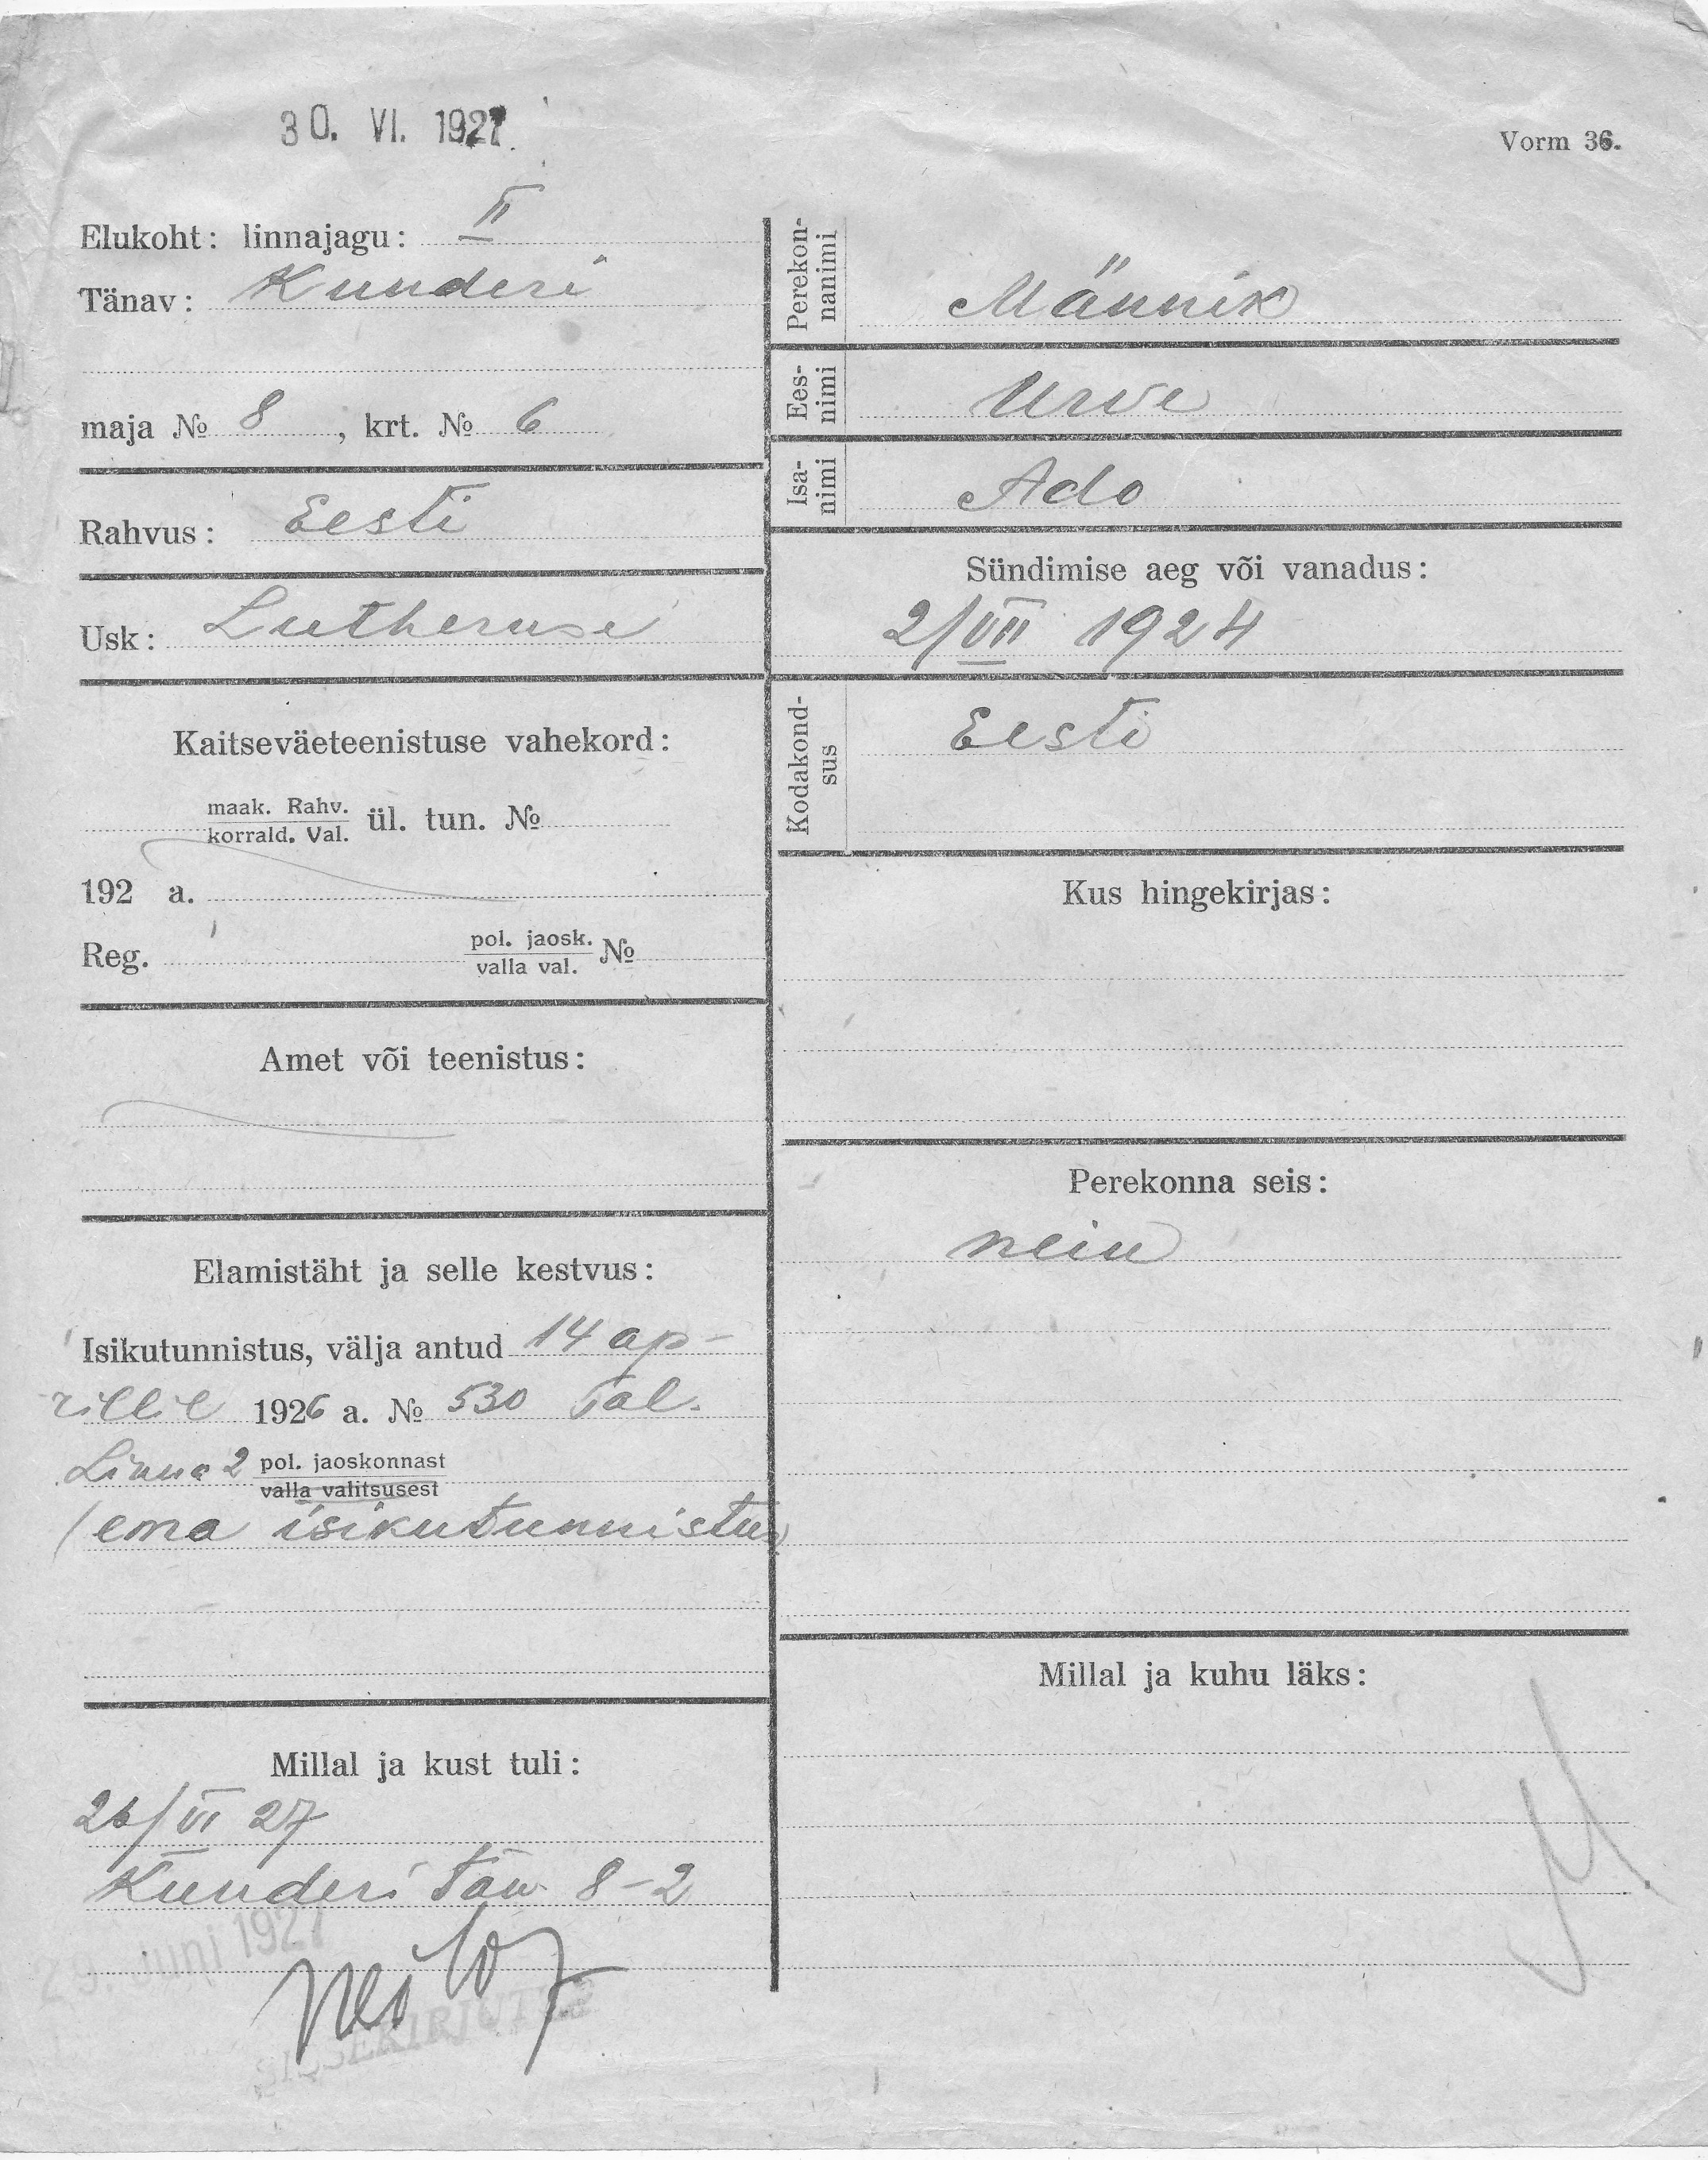 30. VI. 1927.
Vorm 36.
Elukoht: linnajagu: II
Tänav: Kunderi
maja № 8, krt. № 6
Rahvus: Eesti
Usk: Lutheruse
Kaitseväeteenistuse vahekord:
maak. Rahv.
korrald. Val. ül. tun. №
192 a.
Reg. pol. jaosk. №
valla val.
Amet või teenistus:
Elamistäht ja selle kestvus:
Isikutunnistus, välja antud 14 ap-
rillil 1926 a. № 530 Tal.
Linna 2 pol. jaoskonnast
valla valitsusest
(ema isikutunnistus)
Millal ja kust tuli:
26/VI 27
Kunderi tän 8-2
29. Juni 1927
SISSEKIRJUTUS
Perekon-
nanimi Männik
Ees-
nimi Urve
Isa-
nimi Ado
Sündimise aeg või vanadus:
2/VII 1924
Kodakond-
sus Eesti
Kus hingekirjas:
Perekonna seis:
neiu
Millal ja kuhu läks: